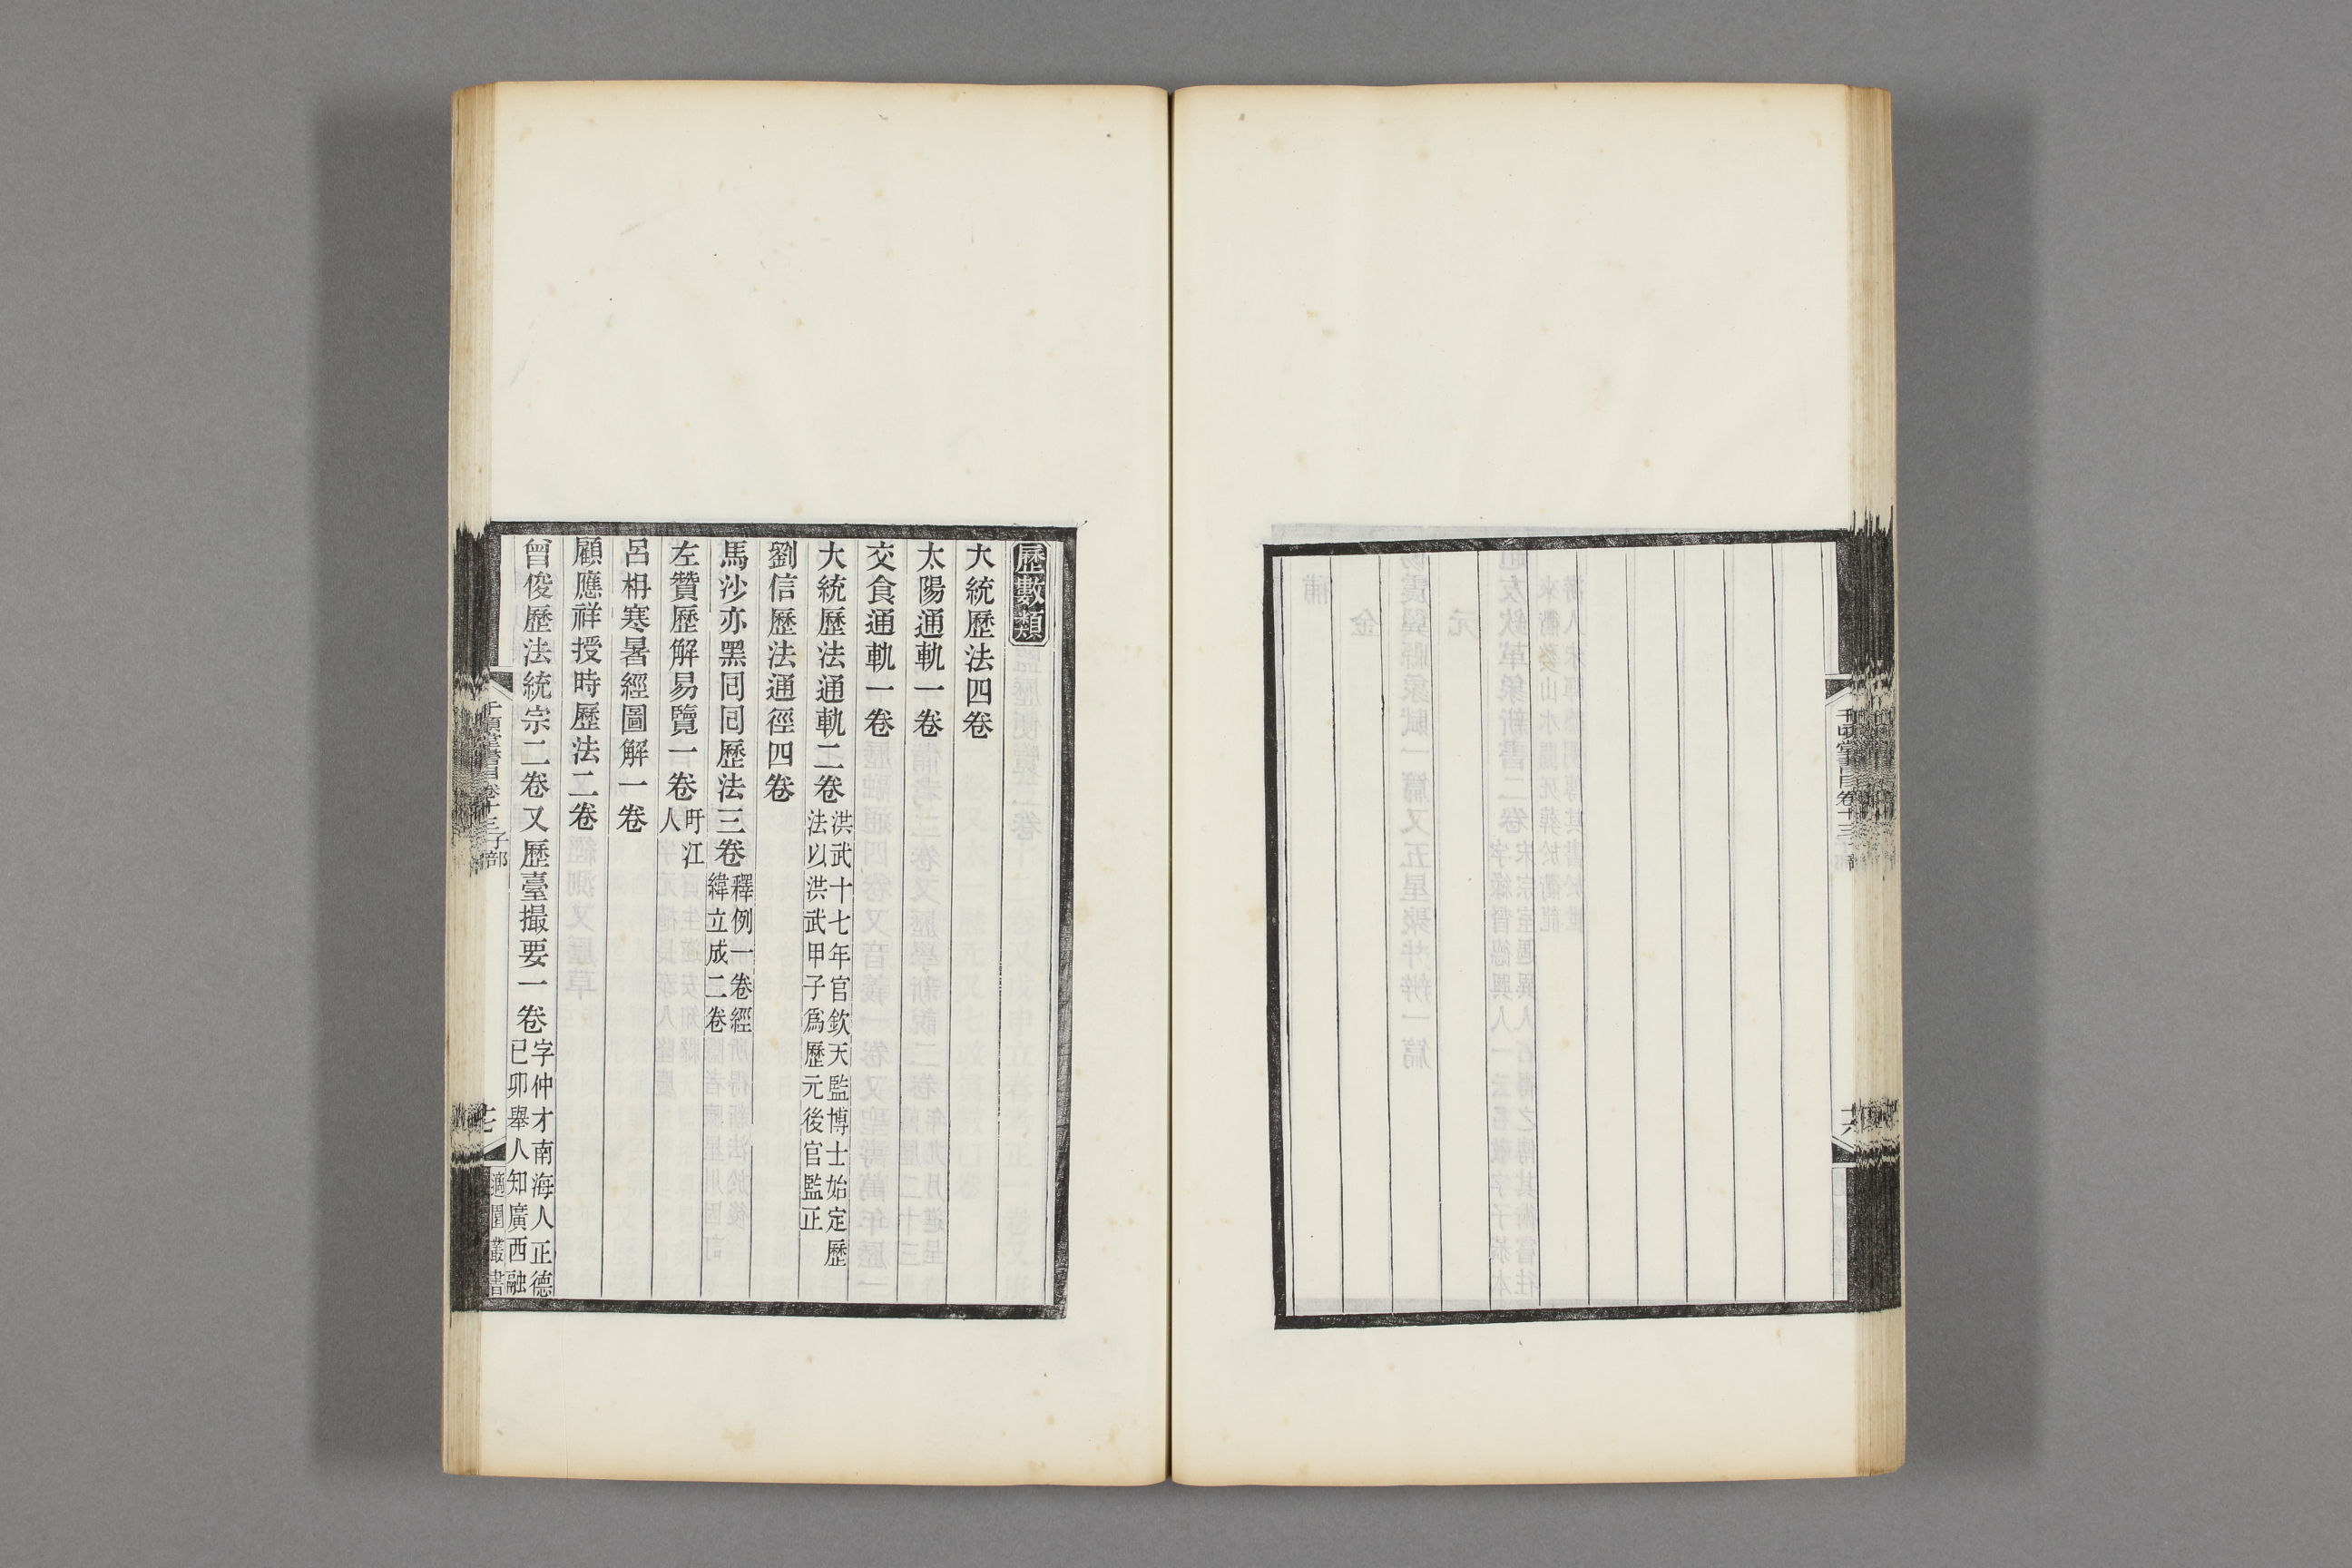 歷數類
大統歷法四卷
太陽通軌一卷
交食通軌一卷
大統歷法通軌二卷洪武十七年官欽天監博士始定歷
法以洪武甲子爲歷元後官監正
劉信歷法通徑四卷
馬沙亦黑囘囘歷法三卷釋例一卷經
緯立成二卷
左贊歷解易覽一卷盱江
人
呂柟寒暑經圖解一卷
顧應祥授時歷法二卷
曾俊歷法統宗二卷又歷臺撮要一卷字仲才南海人正德
已卯舉人知廣西融
千頃堂書目卷十三子部
十七
適園叢書
千頃堂書目卷十三
十六